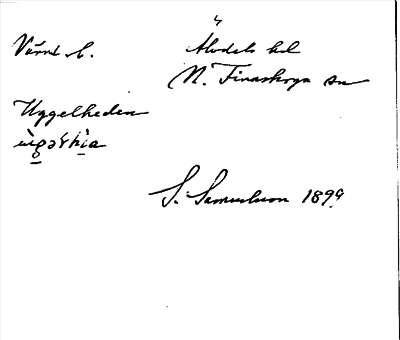 Värml.
Älvdals hd
N. Finnskoga sn
Uggelheden
S. Samuelsson 1899